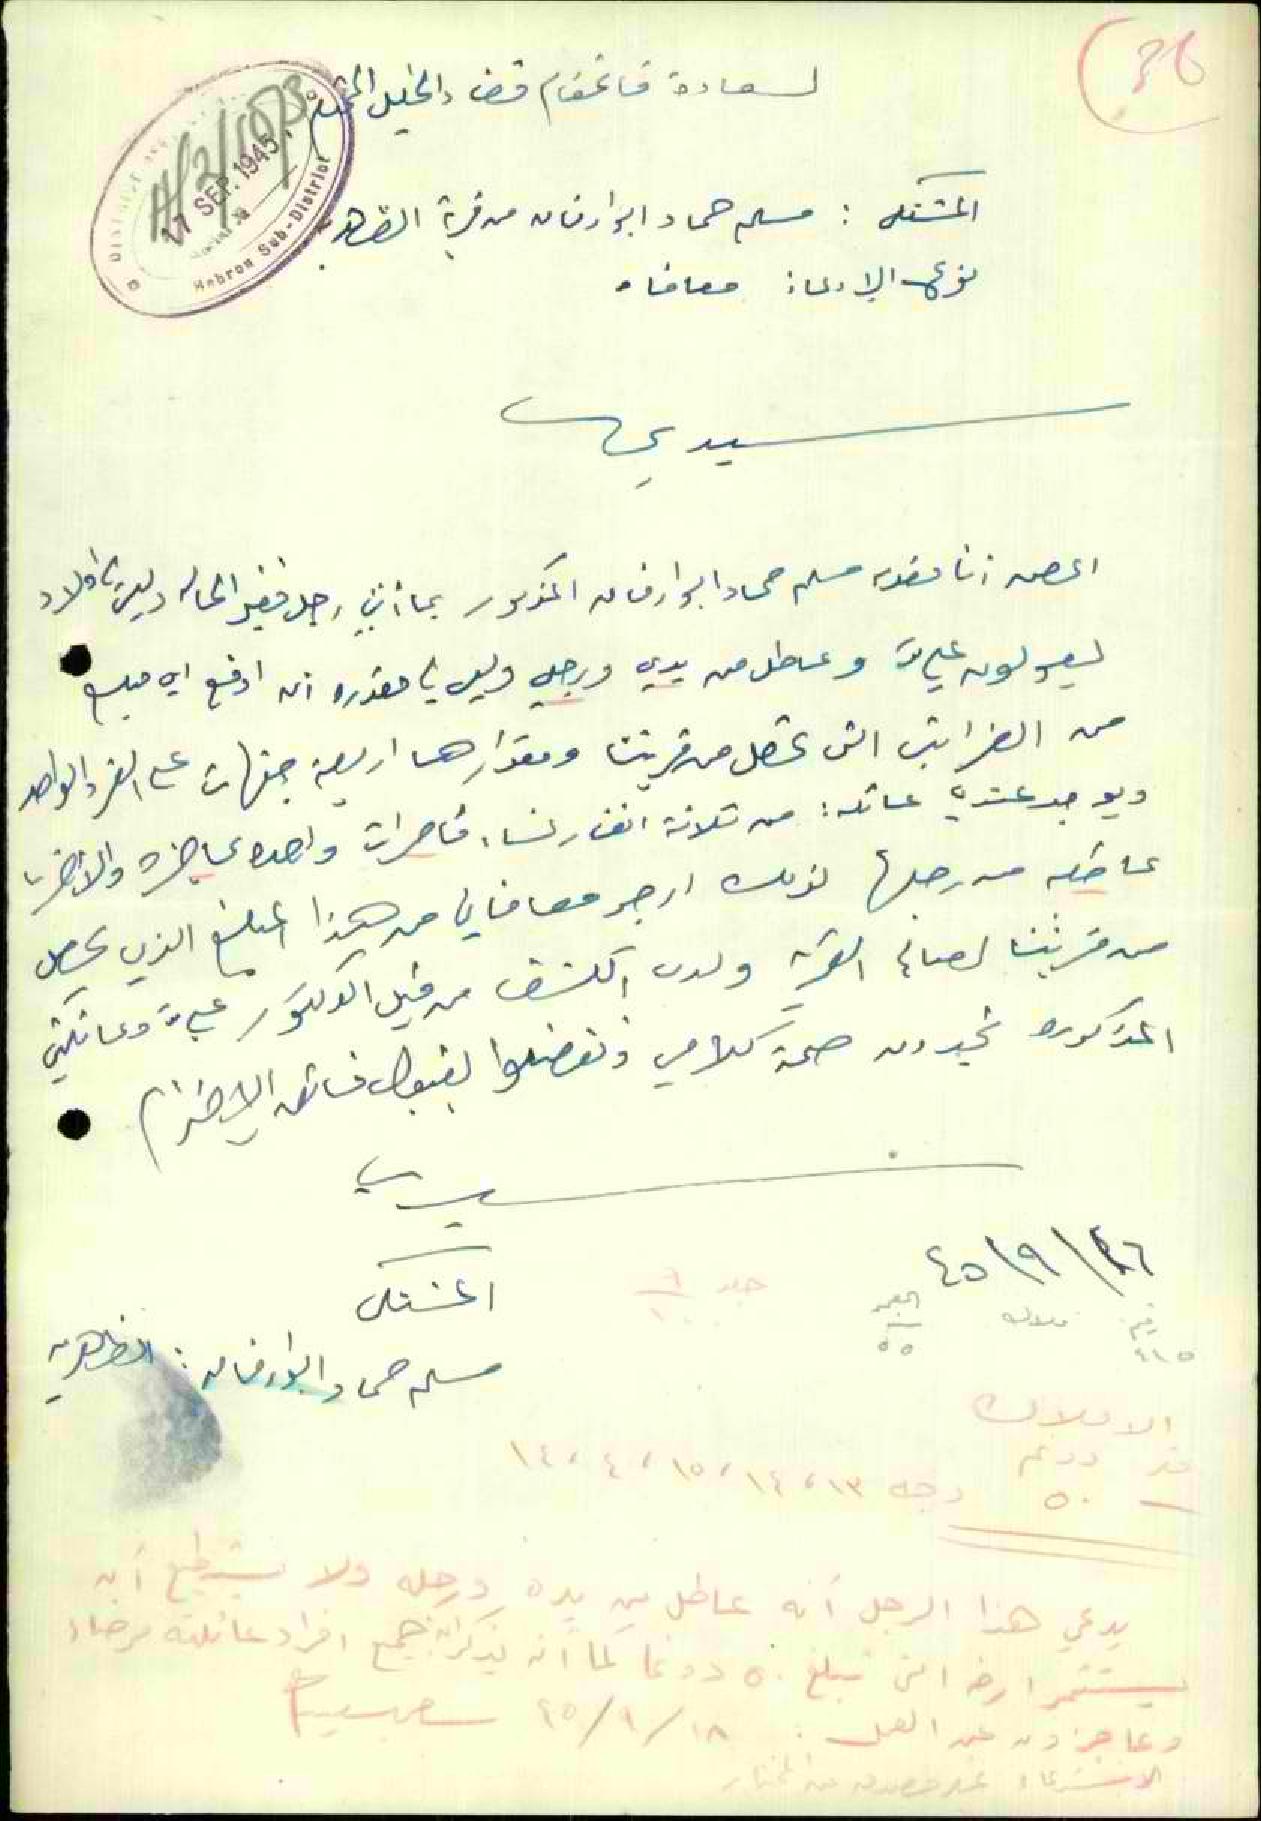 36
لسعادة قائمقام قضاء الخليل المحترم
17 SEP. 1945
Hebron Sub-District
المشتكي : مسلم حماد ابوارفان من قرية الظاهرية
نوع الإدعاء : معافاه
سيدي
اعرض أنا مقدمه مسلم حماد ابوارفان المذكور بما أنني رجل فقير الحاله وليس لي اولاد
ليعولون علي وعاطل من يدي ورجلي وليس لي مقدره ان ادفع اي مبلغ
من الضرائب التي تحصل من قريتنا ومقدارها اربعة جنيهات على الفرد الواحد
ويوجد عندي عائله : من ثلاثة انفار نساء قاصرات واحده عاجزه والاخرى
عاطله من رجلها لذلك ارجو معافاتي من هذا المبلغ الذي يحصل
من قريتنا لصالح القرية ولدى الكشف من قبل الدكتور علي وعائلتي
المذكوره تجدون صحة كلامي وتفضلوا بقبول فائق الاحترام
سيدي
٤٥/٩/١٦
المشتكي
مسلم حماد ابوارفان : الظاهريه
رقم
٤١٥
الاملاك
دونم
٥٠
١٣، ١٤، ١٥، ٤، ١٤
يدعي هذا الرجل أنه عاطل من يده ورجله ولا يستطيع أن
يستثمر ارضه التي تبلغ ٥٠ دونما كما أنه يذكر ان جميع افراد عائلته مرضاء
وعاجزون عن العمل . ٤٥/٩/١٨